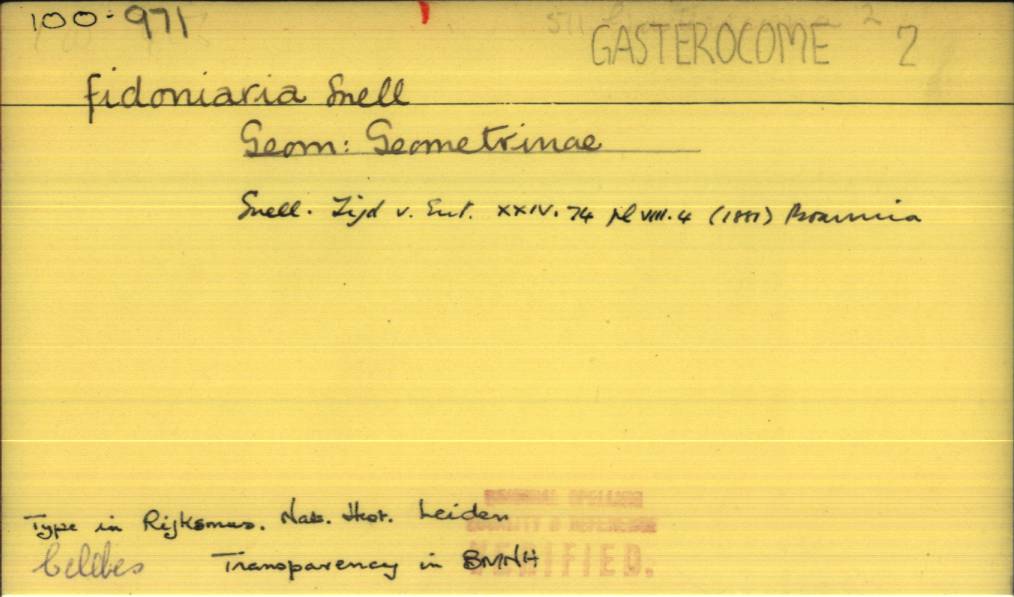 100-971
GASTEROCOME 2
fidoniaria Snell
Geom: Geometrinae
Snell. Tijd v. Ent. XXIV. 74 pl VIII. 4 (1881) Boarmia
Type in Rijksmus. Nat. Hist. Leiden
Celebes Transparency in BMNH
ORIGINAL SPELLING
LOCALITY & REFERENCE
VERIFIED.